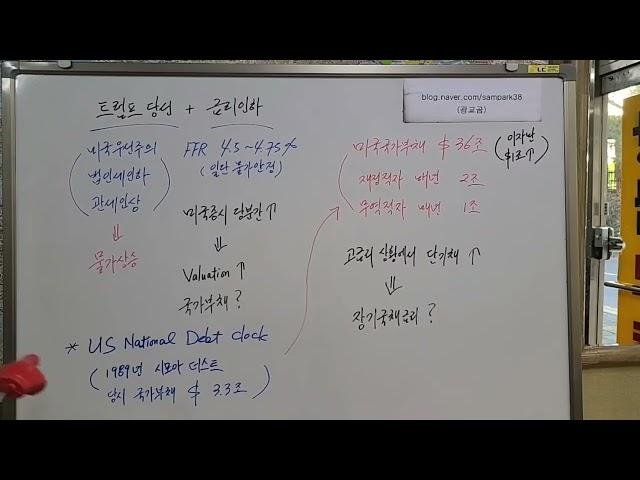 트럼프 당선 + 금리인하
미국우선주의
법인세인하
관세인상
⇓
물가상승
FFR 4.5~4.75%
(일단 물가안정)
미국증시 당분간↑
⇓
Valuation↑
국가부채?
* US National Debt clock
(1989년 시모아 더스트
당시 국가부채 $ 3.3조)
blog.naver.com/sampark38
(광교곰)
미국국가부채 $36조
(이자만
$1조↑)
재정적자 매년 2조
무역적자 매년 1조
고금리 상황에서 단기채↑
⇓
장기국채금리?
LC